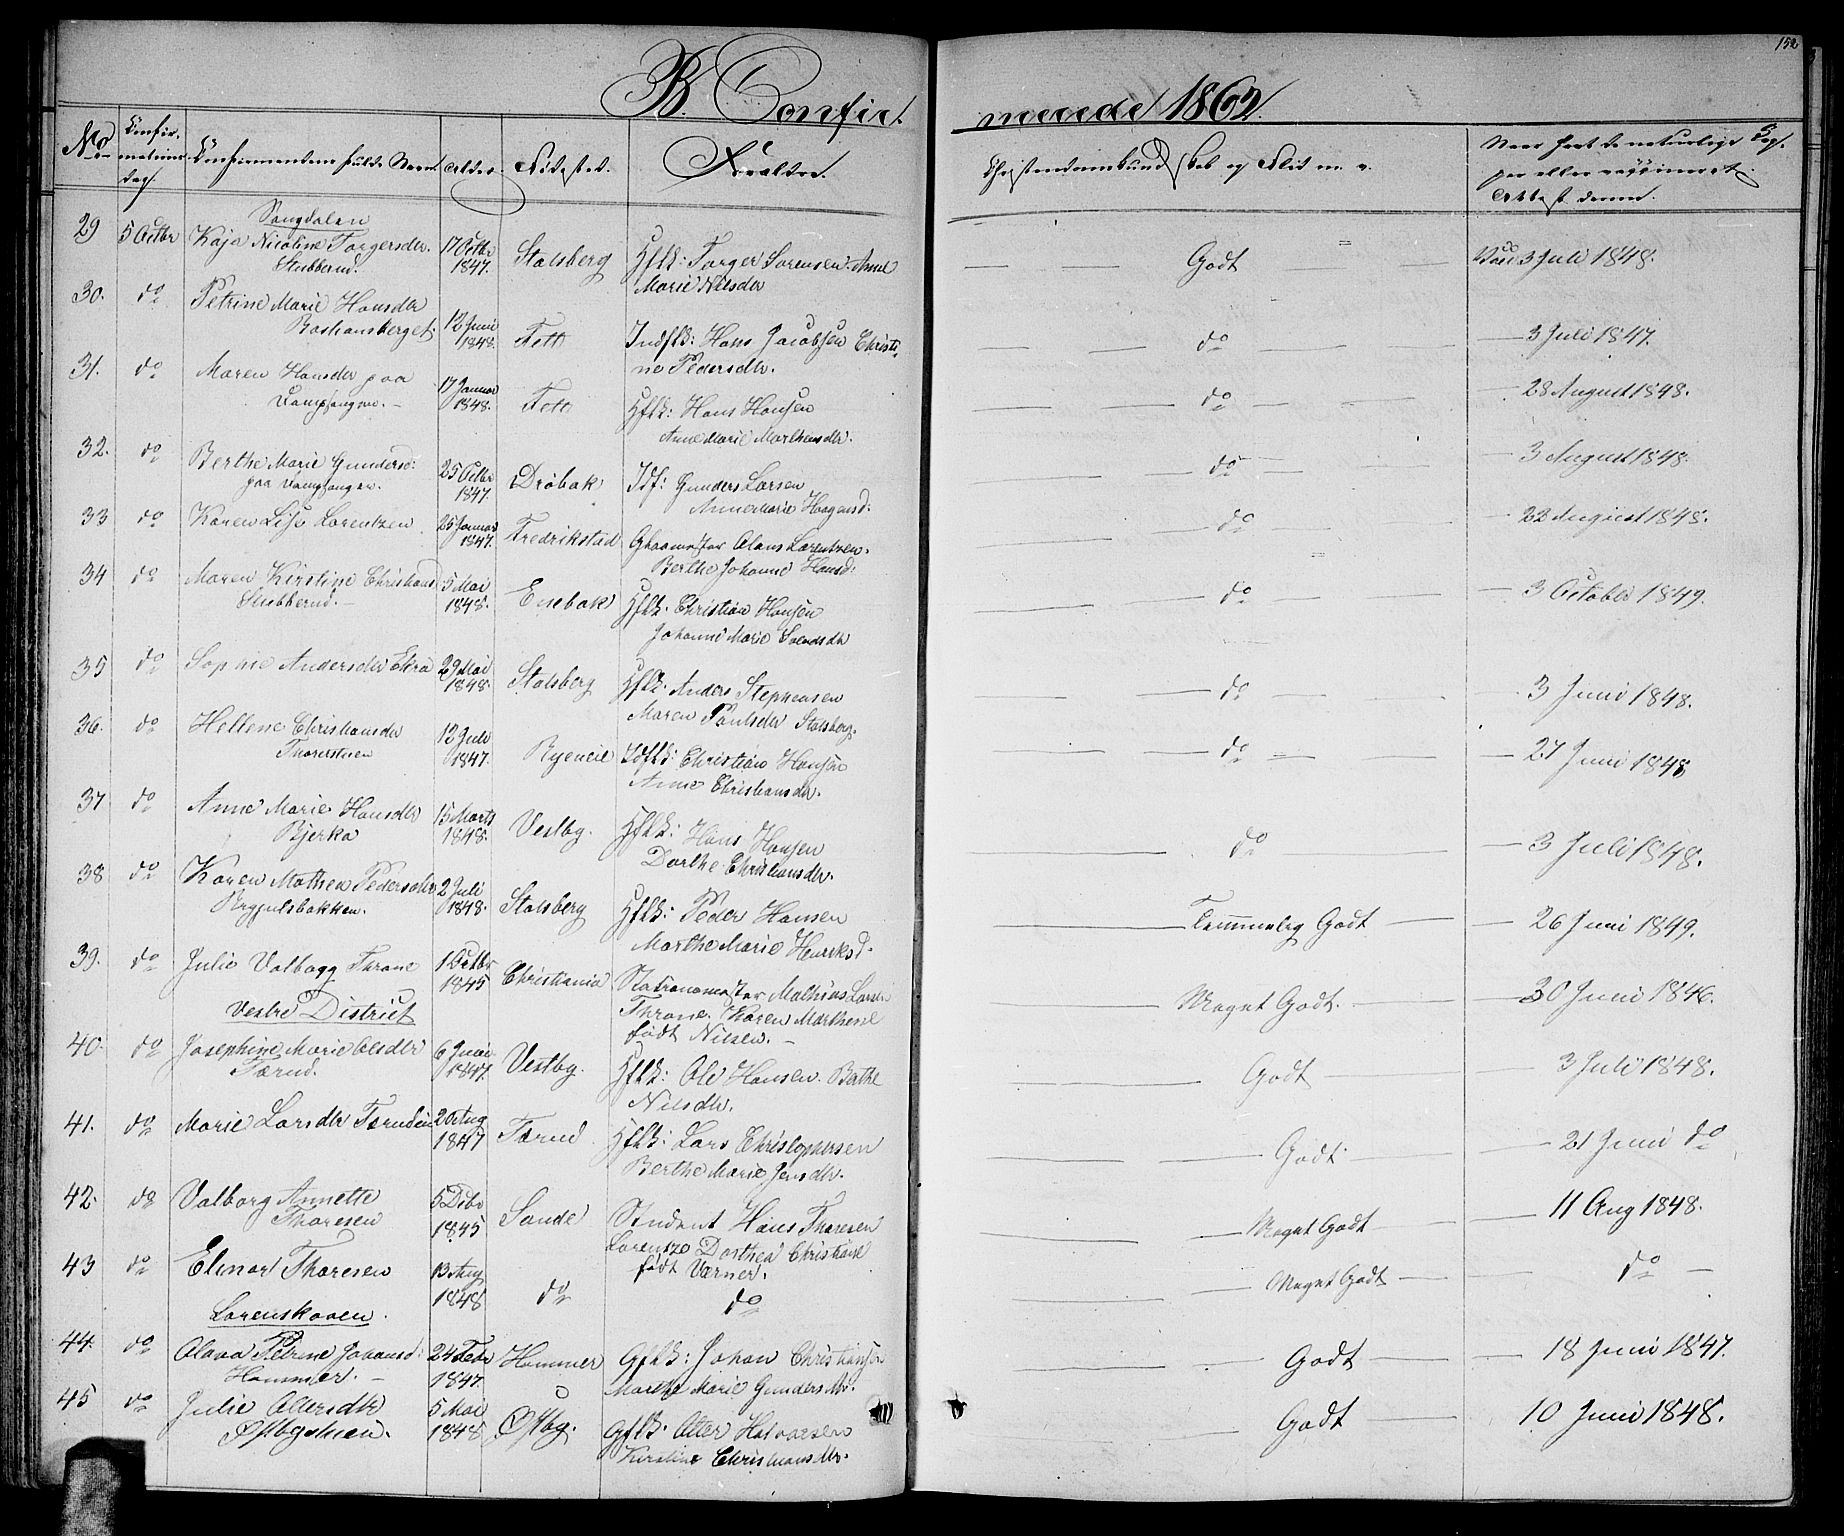 152
B. Confir merede 1862.
No Confirmations dag. Confirmandens fulde Navn Alder Fødested. Forældre. Christendomskundskab og Flid m. v. Naar havt de naturlige Kopper eller vaccineret Attest derom.
Sangdalen
29 5 Octbr Kaja Nicoline Torgersdtr. 17 Octbr Stalsberg Hflk: Torger Sorensen. Anne Godt Vac 3 Juli 1848.
Stubberud. 1847. Marie Nilsdtr
30. do Petrine Marie Hansdtr 12 Juni Fett Indflk: Hans Jacobsen Christi- do 3 Juli 1847.
Bashansberget. 1848. ne Pedersdtr.
31. do Maren Hansdtr paa 17 Januar Fett Hflk: Hans Hansen do 28 August 1848.
1848. Anne Marie Marthinsdtr.
32. do Berthe Marie Gundersd: 25 Octbr Drøbak Idf: Gunders Larsen do 3 August 1848.
paa 1847. Anne Marie Haagensd:
33 do Karen Lise Lorentzen 25 Januar Fredrikstad Olaus Lorentzen. do 22 August 1848.
1847. Berthe Johanne Hansd:
34 do Maren Kirstine Christians 5 Mai Enebak Hflk. Christian Hansen do 3 October 1849.
Stubberud. 1848. Johanne Marie Svendsdtr
35 do Sophie Andersdtr Ekra 29 Mai Stalsberg Hflk: Anders Stephensen do 3 Juni 1848.
1848. Maren Paulsdtr Stalsberg.
36. do Hellene Christiansdtr 12 Juli Idflk: Christian Hansen do 27 Juni 1848
1847. Anne Christiansdtr.
37 do Anne Marie Hansdtr 15 Marts Vestby. Hflk: Hans Hansen do 3 Juli 1848.
Bjerka 1848. Dorthe Christiansdtr.
38 do Karen Mathea Pedersdtr 2 Juli Stalsberg Hflk: Peder Hansen Temmelig Godt 26 Juni 1849.
1848. Marthe Marie Henriksd.
39. do Julie Valborg Throne 1 Octbr Christiania Stationsmester Mathias Larsen Meget Godt. 30 Juni 1846.
1845 Throne. Karen Marthene
Vestre District født Nilsen.
40. do Josephine Marie Olsdtr 6 Juni Vestby. Hflk: Ole Hansen. Berthe Godt 3 Juli 1848.
Tærud. 1847. Nilsdtr.
41. do Marie Larsdtr Tærudeie 20 Aug Tærud Hflk: Lars Christophersen Godt. 21 Juni do
1847 Berthe Marie Jensdtr.
42. do Valborg Annette 5 Dcbr Sande Student Hans Thoresen Meget Godt 11 Aug 1848.
Thoresen 1845 Lorenze Dorthea Christiane
født Værner.
43 do Elinor Thoresen 13 Aug do do Meget Godt do
1848
Lorenskoven.
44. do Olava Petrine Johansd: 24 Febr Hammer Gflk: Johan Christiansen Godt 18 Juni 1847.
Hammer. 1847. Marthe Marie Gundersdtr.
45 do Julie Ottersdtr 5 Mai Østby. Gflk. Otter Halvorsen Godt 10 Juni 1848.
1848 Kirstine Christiansdtr.